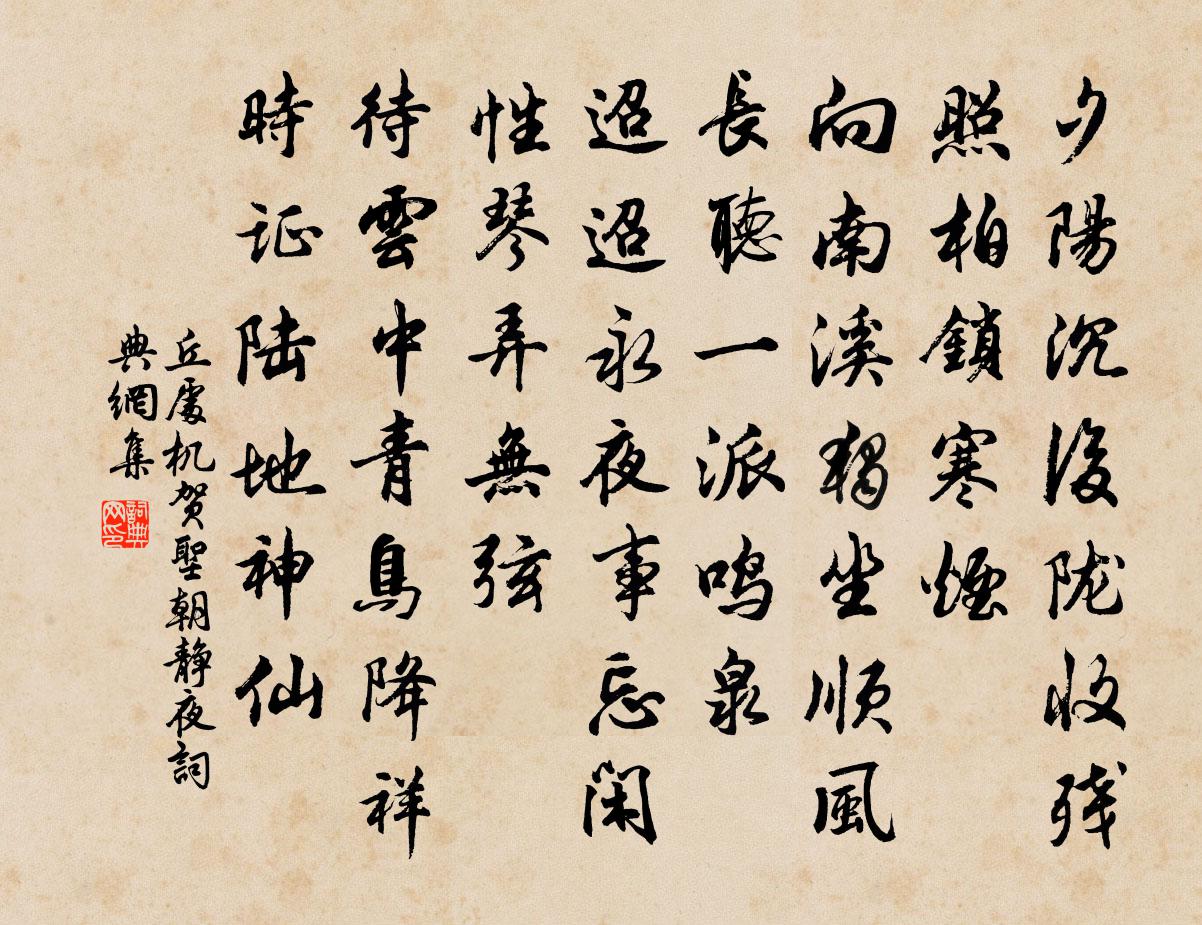 夕陽沉後陇收残
照柏鎖寒煙
向南溪獨坐順風
長聽一派鸣泉
迢迢永夜事忘閑
性琴弄無弦
待雲中青鳥降祥
時证陆地神仙
丘處机贺聖朝静夜詞
典網集
詞典网印